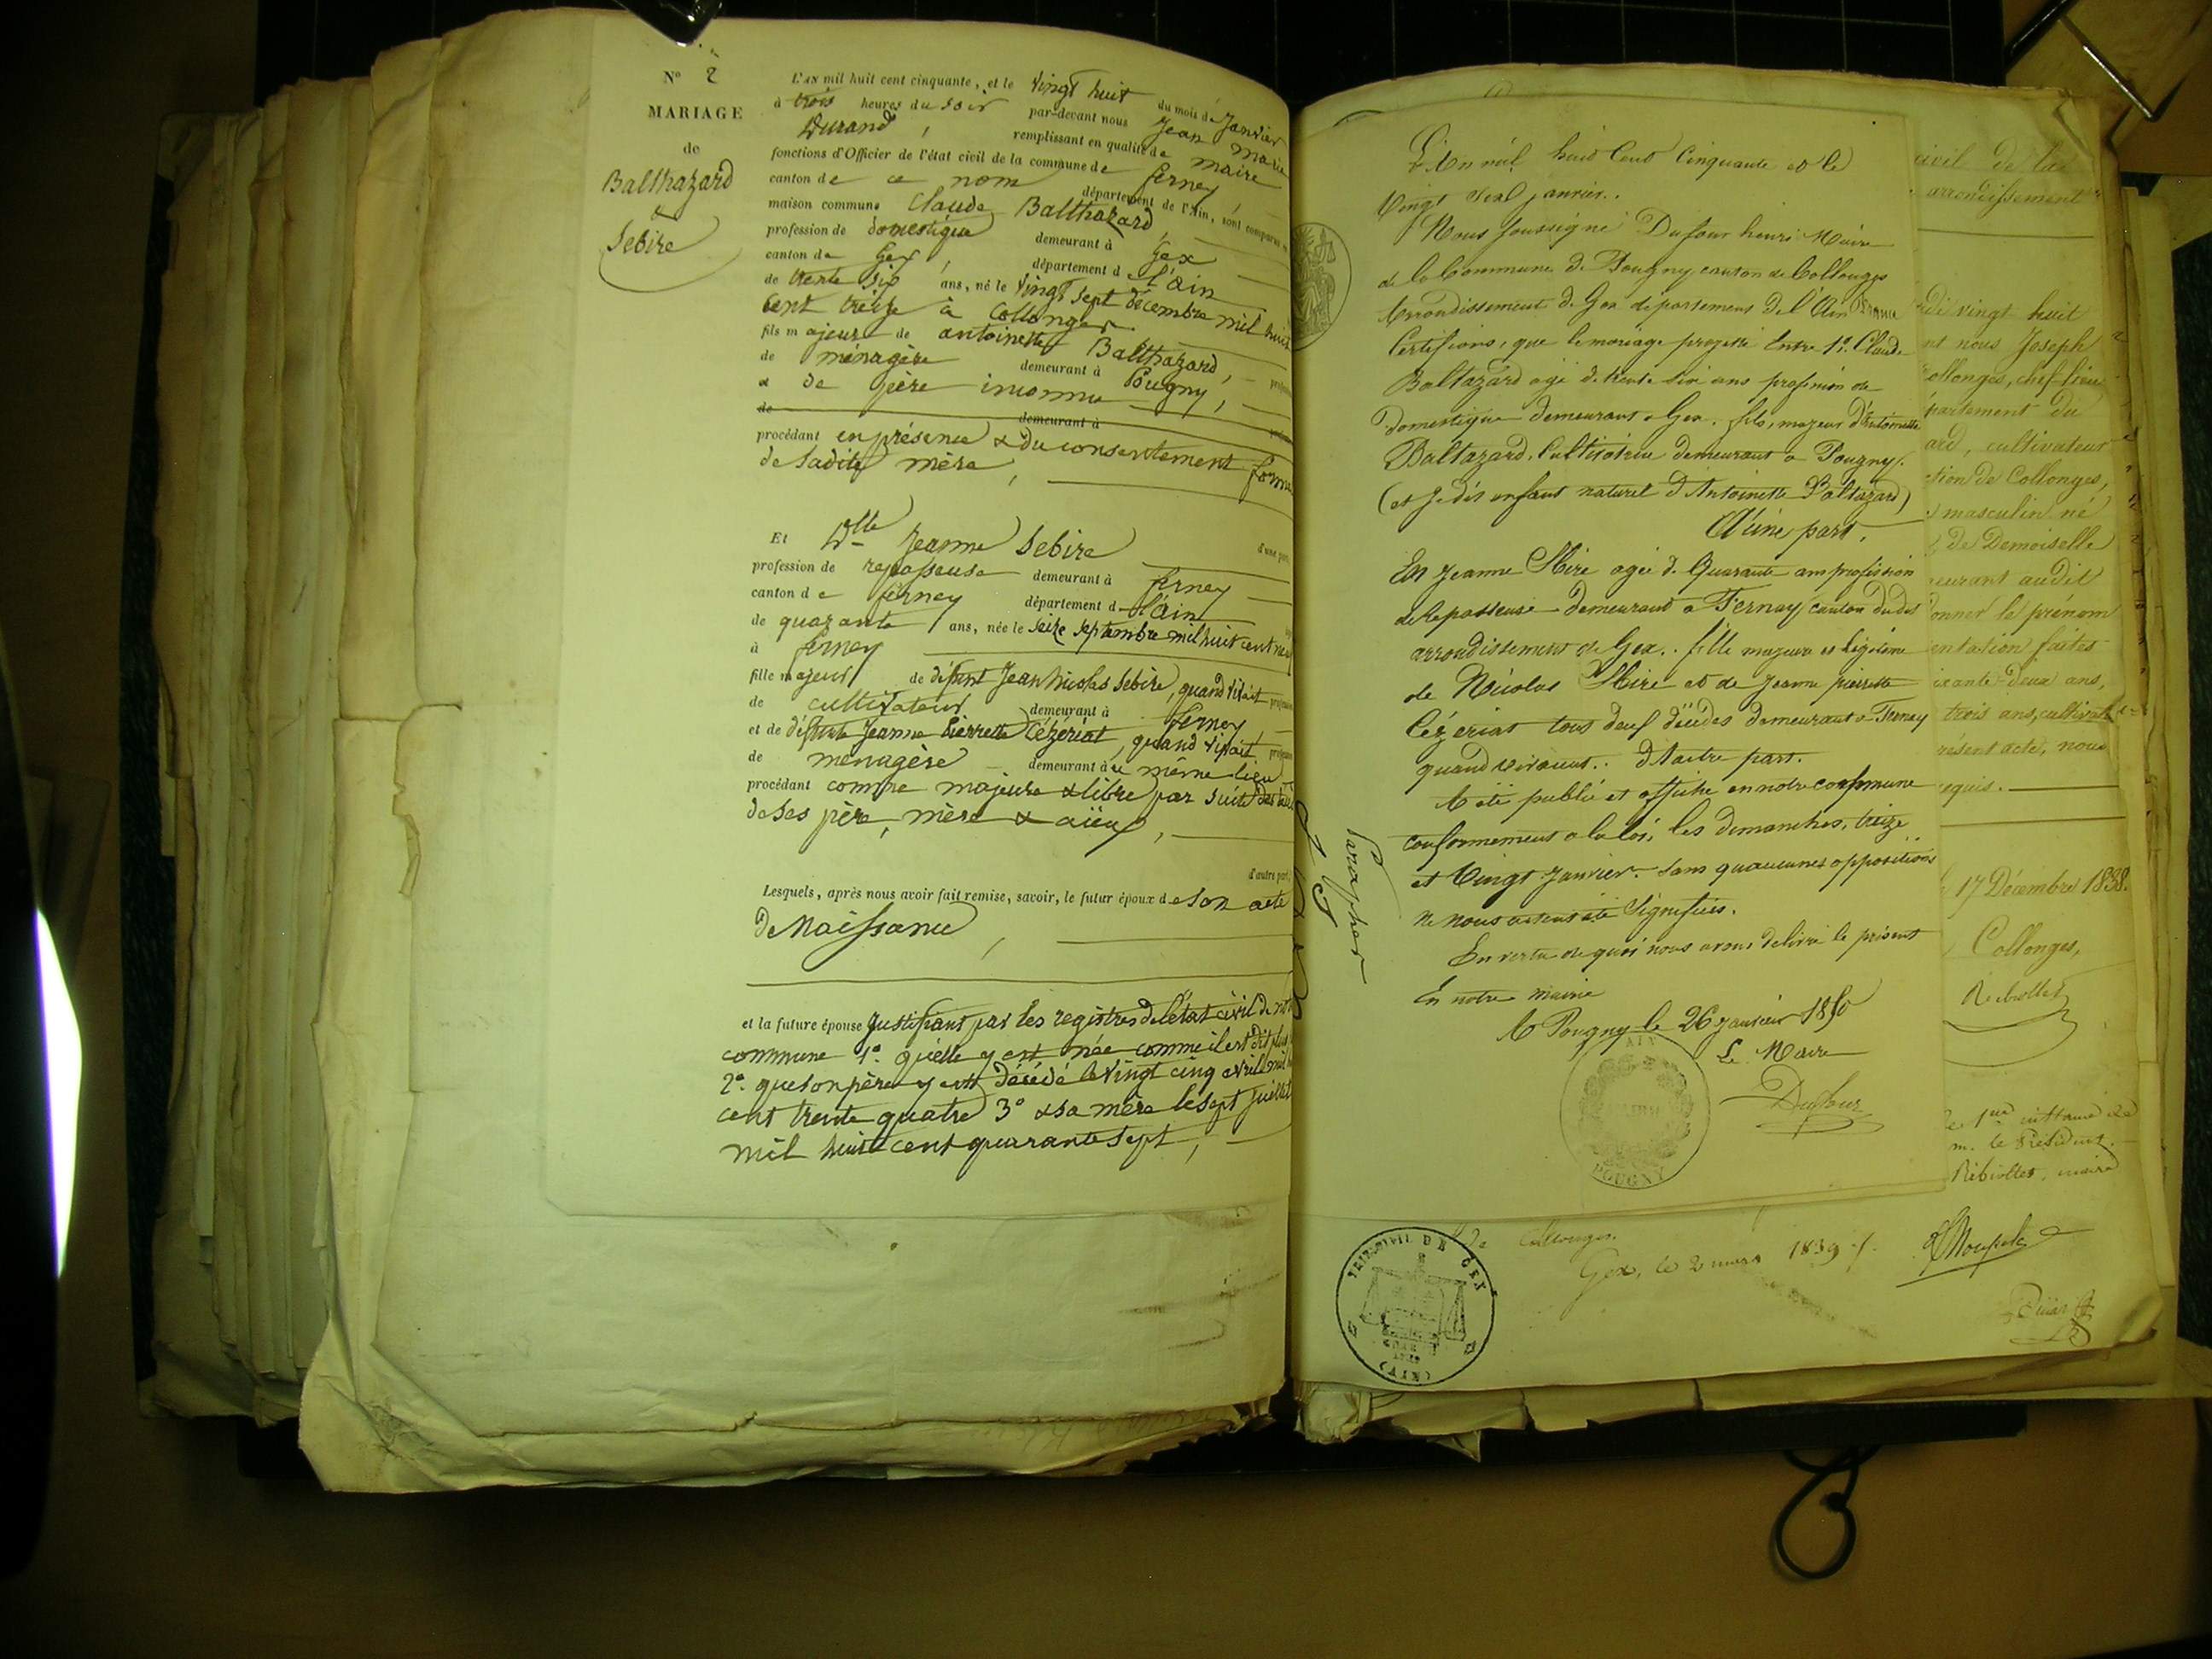 N° 2
MARIAGE
de
Balthazard
&
Sebire
L'AN mil huit cent cinquante, et le vingt huit du mois de Janvier
à trois heures du soir par-devant nous Jean Marie
Durand, remplissant en qualité de maire
fonctions d'Officier de l'état civil de la commune de ferney
canton de ce nom département de l'Ain, sont comparus
maison commune Claude Balthazard
profession de domestique demeurant à Gex
canton de Gex, département d l'ain
de trente six ans, né le vingt sept décembre mil huit
cent treize à Collonges
fils majeur de antoinette Balthazard,
de ménagère demeurant à Pougny,
& de père inconnu
de demeurant à
procédant en présence & du consentement formel
de Sadite mère,
d'une part
Et Dlle Jeanne Sebire
profession de repasseuse demeurant à ferney
canton de ferney département d l'ain
de quarante ans, née le seize septembre mil huit cent neuf
à ferney
fille majeure de défunt Jean Nicolas Sebire, quand vivait
de cultivateur demeurant à ferney
et de défunte Jeanne Pierrette Cézériat, quand vivait
de menagère demeurant à ce même lieu
procédant comme majeure & libre par suite des
de Ses père, mère & aïeux,
d'autre part
Lesquels, après nous avoir fait remise, savoir, le futur époux de son acte
de Naissance,
et la future épouse Justifiant par les registres de l'état civil de
commune 1° qu'elle y est née comme il est dit plus
2° que son père y est décédé le vingt cinq avril mil
cent trente quatre 3° & sa mère le sept juillet
mil huit cent quarante sept,
L'An mil huit Cent Cinquante et le
Vingt Sial janvier.
Nous Soussigné Dufour henri Maire
de la Commune de Pougny canton de Collonges
Arrondissement de Gex département de l'Ain
Certifions, que le mariage projetté Entre 1° Claude
Baltazard agé de trente six ans profession de
domestique demeurant a Gex. fils, majeur d'Antoinette
Baltazard, Cultivatrice demeurant a Pougny.
(et Je dis enfant naturel d'Antoinette Baltazard)
d'une part.
Et Jeanne Sbire agée de Quarante ans profession
de Repasseuse demeurant a Fernay canton dudit
arrondissement de Gex. fille majeure et légitime
de Nicolas Sbire et de Jeanne pierrette
Cézeriat tous deux décédés demeurant a Fernay
quand vivaient. d'Autre part.
A été publié et affiché en notre commune
conformement a la loi, les dimanches, treize
et Vingt Janvier. Sans qu'aucunes oppositions
ne nous aient été Signifiées.
En vertu de quoi nous avons délivré le présent
En notre mairie
A Pougny le 26 janvier 1850
Le Maire
Dufour
AIN
MAIRIE
POUGNY
Parapher
civil de la
arrondissement
vingt huit
nous Joseph
Collonges, chef-lieu
département du
cultivateur
de Collonges,
masculin né
de Demoiselle
demeurant audit
donner le prénom
faites
deux ans,
trois ans, cultivat
présent acte, nous
requis.
17 Décembre 1838.
Collonges,
m. le Président.
maire
de Collonges.
Gex, le 2 mars 1839
TRIB. CIVIL DE GEX
(AIN)